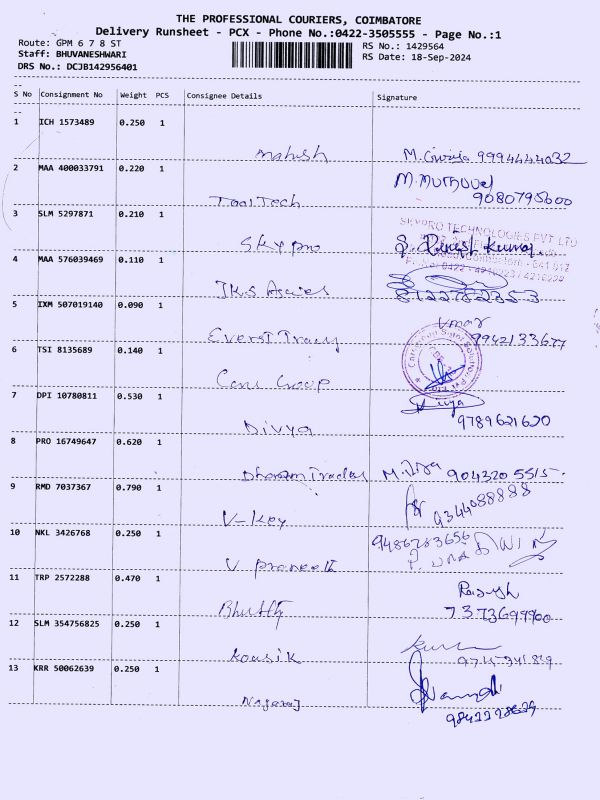 THE PROFESSIONAL COURIERS, COIMBATORE
Delivery Runsheet - PCX - Phone No.:0422-3505555 - Page No.:1
Route: GPM 6 7 8 ST
Staff: BHUVANESHWARI
DRS No.: DCJB142956401
RS No.: 1429564
RS Date: 18-Sep-2024
S No Consignment No Weight PCS Consignee Details Signature
1 ICH 1573489 0.250 1
Mahesh M. 9994444032
2 MAA 400033791 0.220 1
Tool Tech M. Muthuvel
9080795600
3 SLM 5297871 0.210 1
Sky pro S. Dinesh Kumar
SKYPRO TECHNOLOGIES PVT LTD
4 MAA 576039469 0.110 1
8122782353
5 IXM 507019140 0.090 1
Umar
6 TSI 8135689 0.140 1
Group
7 DPI 10780811 0.530 1
Divya Divya
9789621620
8 PRO 16749647 0.620 1
Dharam Traders M. 9043205515
9 RMD 7037367 0.790 1
V-Key 9344088888
10 NKL 3426768 0.250 1
V 9486283656
11 TRP 2572288 0.470 1
Rajesh
7373699900
12 SLM 354756825 0.250 1
Kousik
13 KRR 50062639 0.250 1
Nagaraj